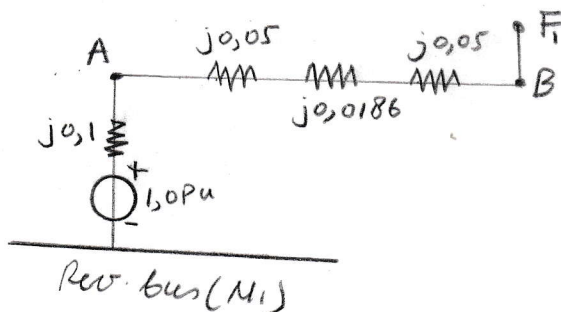 j0,05
j0,05
F₁
A
B
j0,0186
j0,1
+
1,0pu
-
bus (N₁)